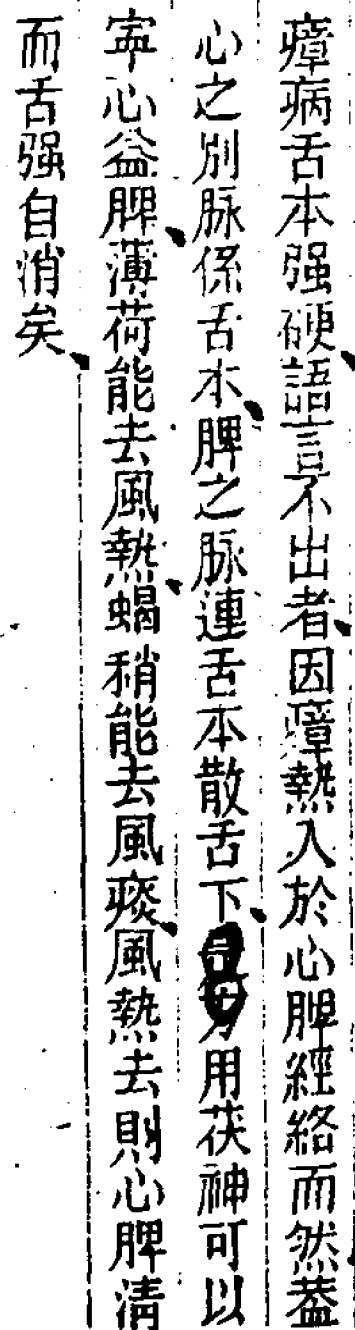 瘴病舌本强硬語言不出者因瘴熱入於心脾經絡而然蓋
心之别脉係舌本脾之脉連舌本散舌下用茯神可以
寕心益脾薄荷能去風熱蝎稍能去風痰風熱去則心脾清
而舌强自消矣